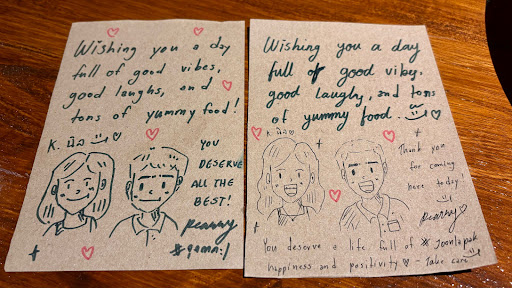 Wishing you a day
full of good vibes,
good laughs, and
tons of yummy food!
YOU
DESERVE
ALL THE
BEST!
Wishing you a day
full of good vibes,
good laughs, and tons
of yummy food.
Thank you
for coming
here today!
You deserve a life full of
happiness and positivity ♡ - Take care